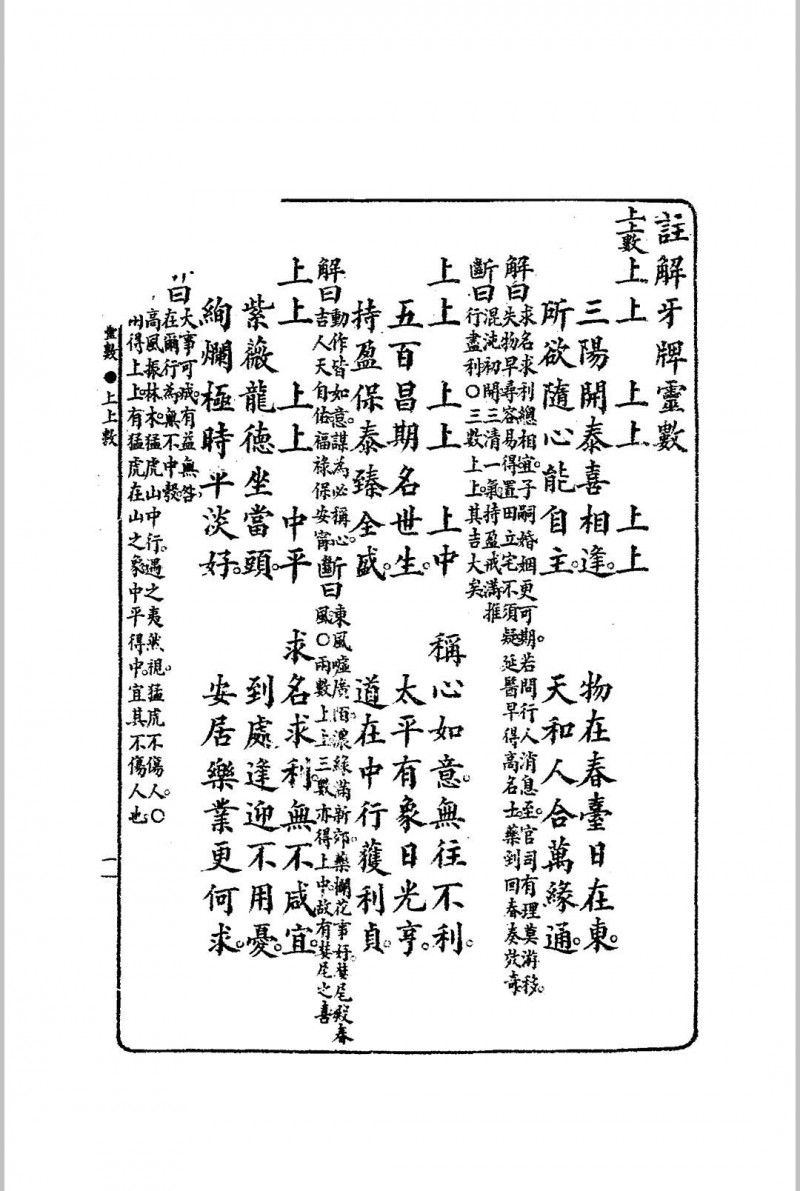 註解牙牌靈數
上上數
上上　上上　上上
三陽開泰喜相逢。　物在春臺日在東。
所欲隨心能自主。　天和人合萬緣通。
解曰
求名求利總相宜。子嗣婚姻更可期。若問行人消息至。官司有理莫游移。
失物早尋容易得。置田立宅不須疑。延醫早得高名士。藥到回春奏效奇。
斷曰
混沌初開。三清一氣。持盈戒滿。推
行盡利〇三數上上。其吉大矣
上上　上上　上中　稱心如意。無往不利。
五百昌期名世生。　太平有象日光亨。
持盈保泰臻全盛。　道在中行獲利貞。
解曰
動作皆如意。謀為必稱心。
吉人天自佑。福祿保安甯。
斷曰
東風噓廣陌。濃綠滿新郊。藥欄花事好。婪尾殿春
風。〇兩數上上。三數亦得上中。故有婪尾之喜
上上　上上　中平　求名求利。無不咸宜。
紫薇龍德坐當頭。　到處逢迎不用憂。
絢爛極時平淡好。　安居樂業更何求。
曰
大事可成。有益無咎。
在爾行為。無不中彀
高風振林木。猛虎山中行。遇之夷然視。猛虎不傷人。〇
兩得上上。有猛虎在山之象。中平得中。宜其不傷人也
靈數　●　上上數　一